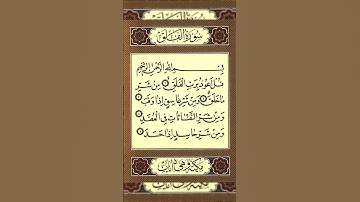 سورة الفلق
بسم الله الرحمن الرحيم
قل أعوذ برب الفلق ۝ من شر
ما خلق ۝ ومن شر غاسق إذا وقب ۝
ومن شر النفاثات في العقد ۝
ومن شر حاسد إذا حسد ۝